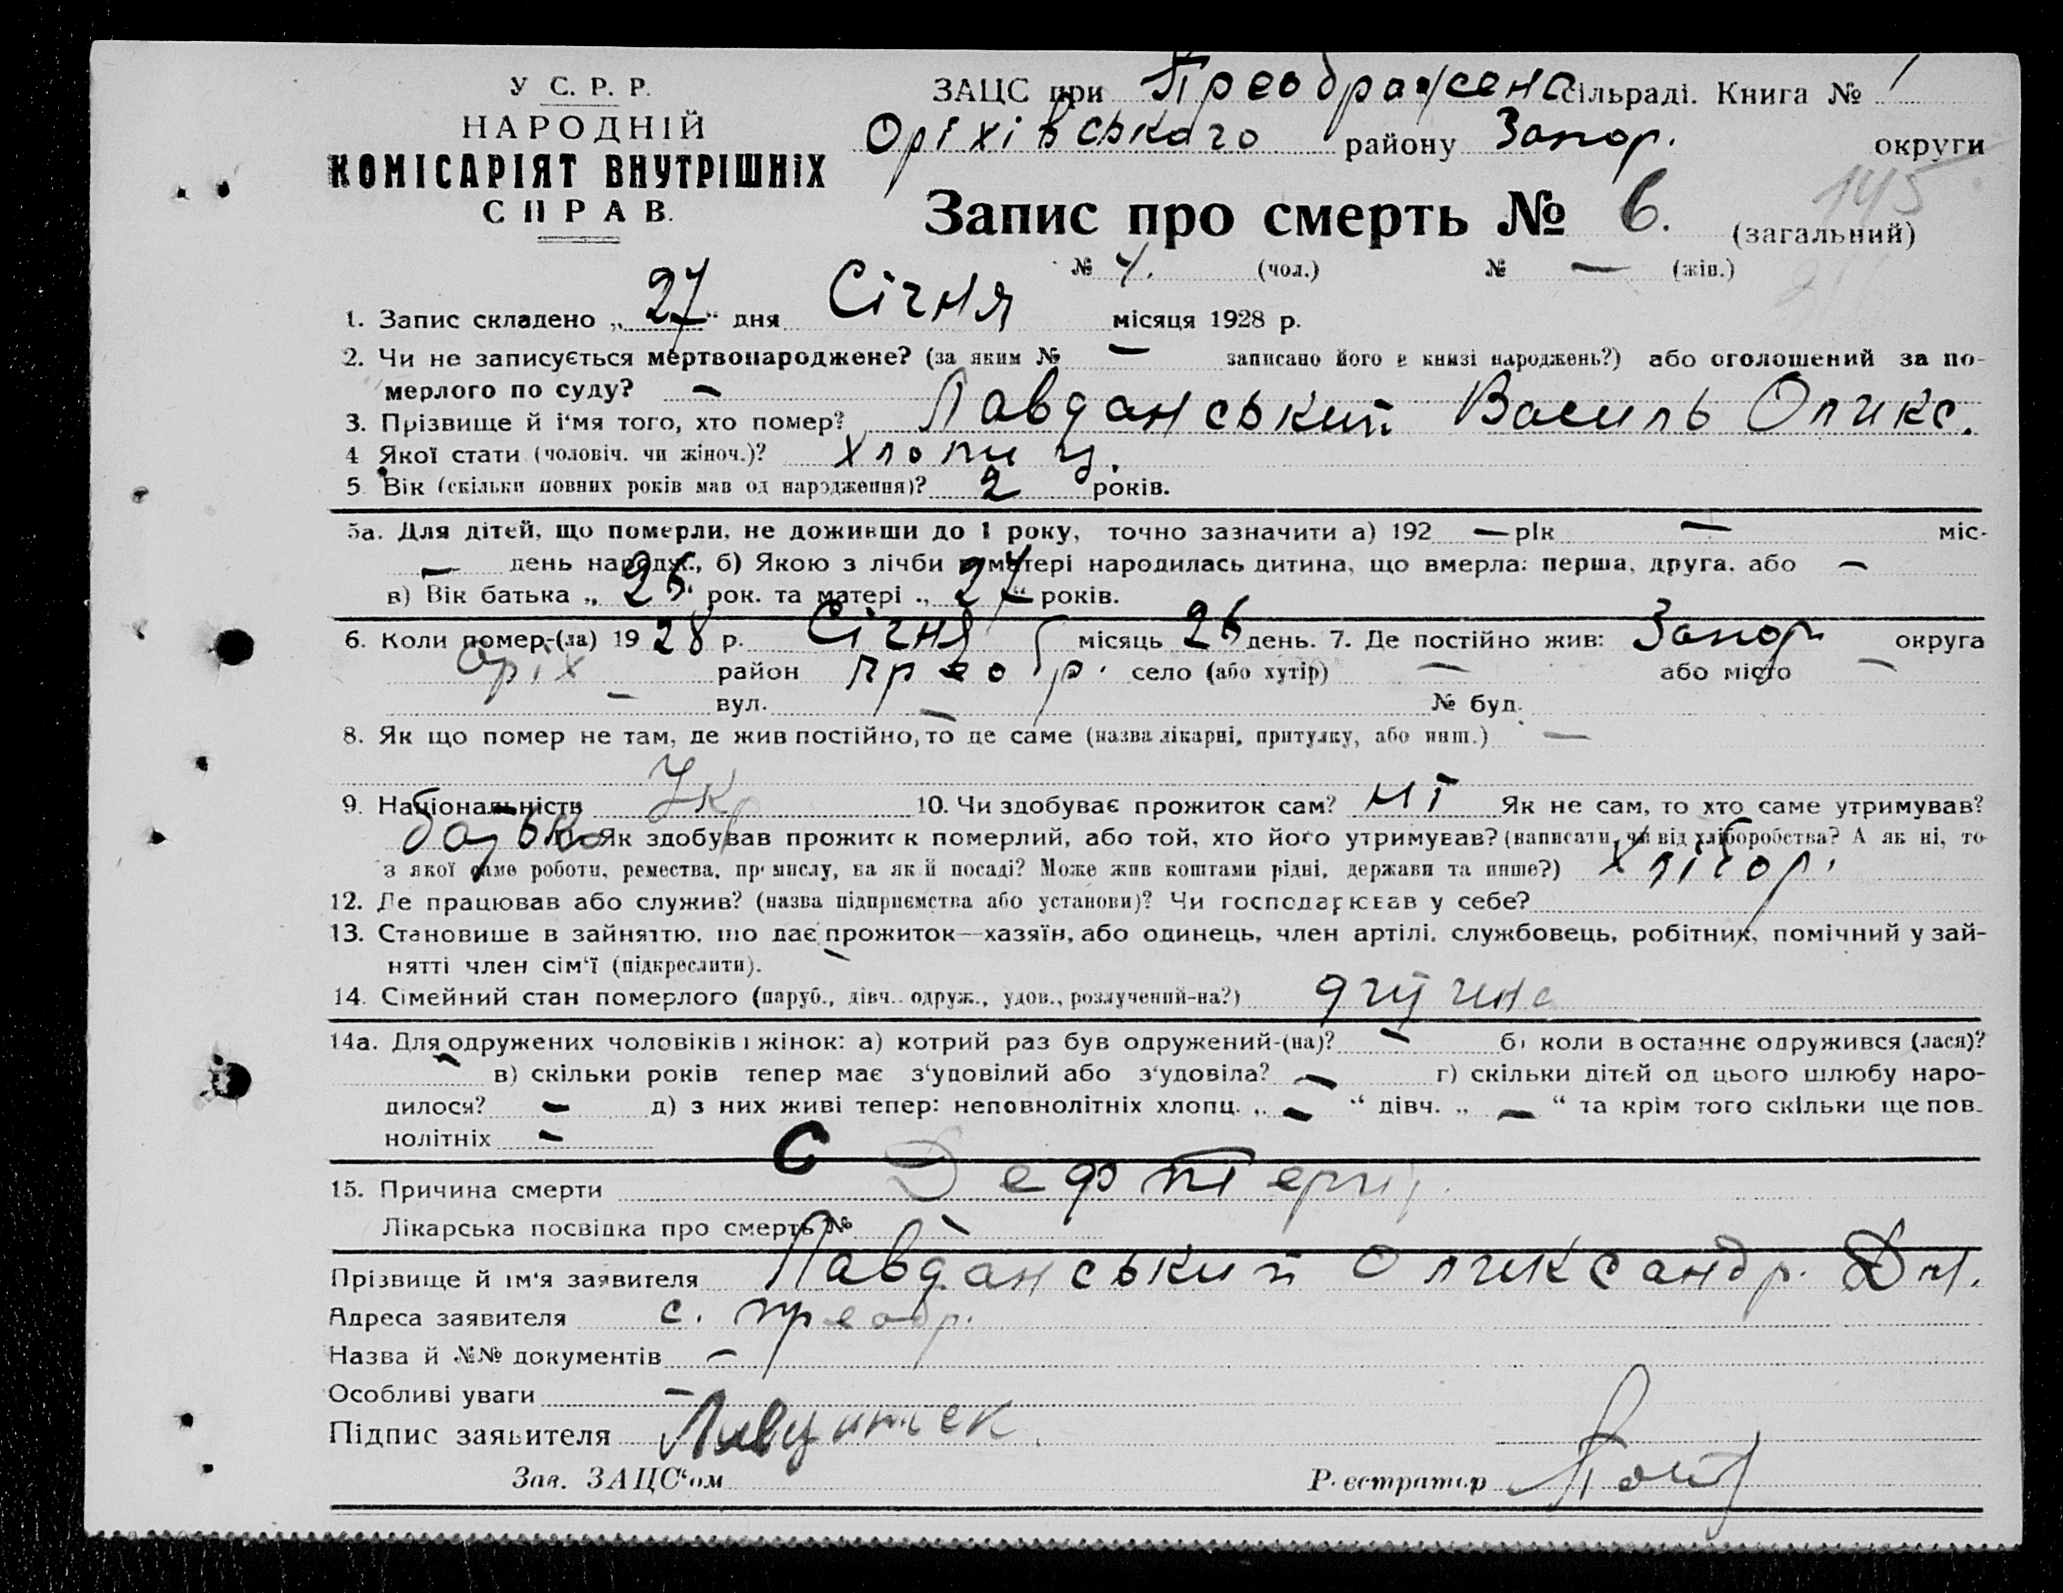 У С. Р. Р.
НАРОДНІЙ
КОМІСАРІЯТ ВНУТРІШНІХ
СПРАВ.
ЗАЦС при Преображена сільраді. Книга № 1
Оріхівського району Запор. округи
145
Запис про смерть № 6. (загальний)
№ 4. (чол.) № — (жін.)
1. Запис складено „ 27 “ дня Січня місяця 1928 р.
2. Чи не записується мертвонароджене? (за яким № — записано його в книзі народжень?) або оголошений за по-
мерлого по суду? —
3. Прізвище й ім‘я того, хто помер? Лавданський Василь Оликс.
4 Якої стати (чоловіч. чи жіноч.)? хлопиц.
5 Вік (скільки повних років мав од народження)? 2 років.
5а. Для дітей, що померли, не доживши до 1 року, точно зазначити а) 192 — рік — міс-
— день народж., б) Якою з лічби у матері народилась дитина, що вмерла: перша, друга, або —
в) Вік батька „ 26 “ рок. та матері „ 27 “ років.
6. Коли помер-(ла) 19 28 р. Січня місяць 26 день. 7. Де постійно жив: Запор округа
Оріх район преобр. село (або хутір) — або місто —
— вул. — № буд.
8. Як що помер не там, де жив постійно, то де саме (назва лікарні, притулку, або инш.) —
9. Національність Укр 10. Чи здобуває прожиток сам? ні Як не сам, то хто саме утримував?
батько 11. Як здобував прожиток померлий, або той, хто його утримував? (написати, чи від хліборобства? А як ні, то
з якої саме роботи, ремества, промислу, на якій посаді? Може жив коштами рідні, держави та инше?) хлібор.
12. Де працював або служив? (назва підприємства або установи)? Чи господарював у себе?
13. Становище в зайняттю, що дає прожиток—хазяїн, або одинець, член артілі, службовець, робітник, помічний у зай-
нятті член сім‘ї (підкреслити).
14. Сімейний стан померлого (паруб., дівч., одруж., удов., розлучений-на?)
14а. Для одружених чоловіків і жінок: а) котрий раз був одружений-(на)? — б) коли востаннє одружився (лася)?
— в) скільки років тепер має з‘удовілий або з‘удовіла? — г) скільки дітей од цього шлюбу наро-
дилося? — д) з них живі тепер: неповнолітніх хлопц. „ — “ дівч. „ — “ та крім того скільки ще пов-
нолітніх —
15. Причина смерти С Дефтерит
Лікарська посвідка про смерть № —
Прізвище й ім‘я заявителя Лавданський Оликсандр. Дм.
Адреса заявителя с. преобр.
Назва й №№ документів —
Особливі уваги —
Підпис заявителя
Зав. ЗАЦС‘ом Реєстратор